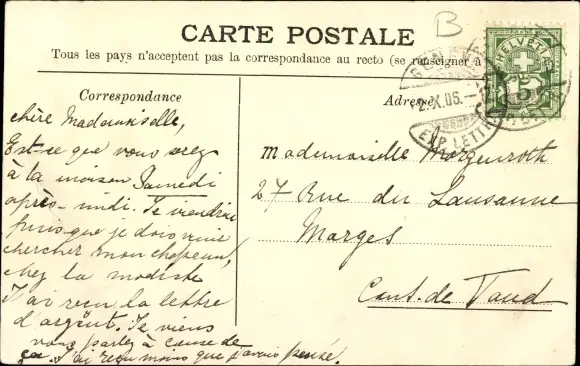 B
CARTE POSTALE
Tous les pays n'acceptent pas la correspondance au recto (se renseigner à
Correspondance
Adresse
HELVETIA
5
X.06.
EXP. LETTR
chère Mademoiselle,
Est-ce que vous serez
à la maison Samedi
après-midi. Je viendrai
puisque je dois venir
chercher mon chapeau,
chez la modiste
J'ai reçu la lettre
d'argent. Je viens
vous parler à cause de
ça. J'ai reçu moins que j'avais pensé.
Mademoiselle Morgenroth
27 Rue du Lausanne
Morges
Cant. de Vaud